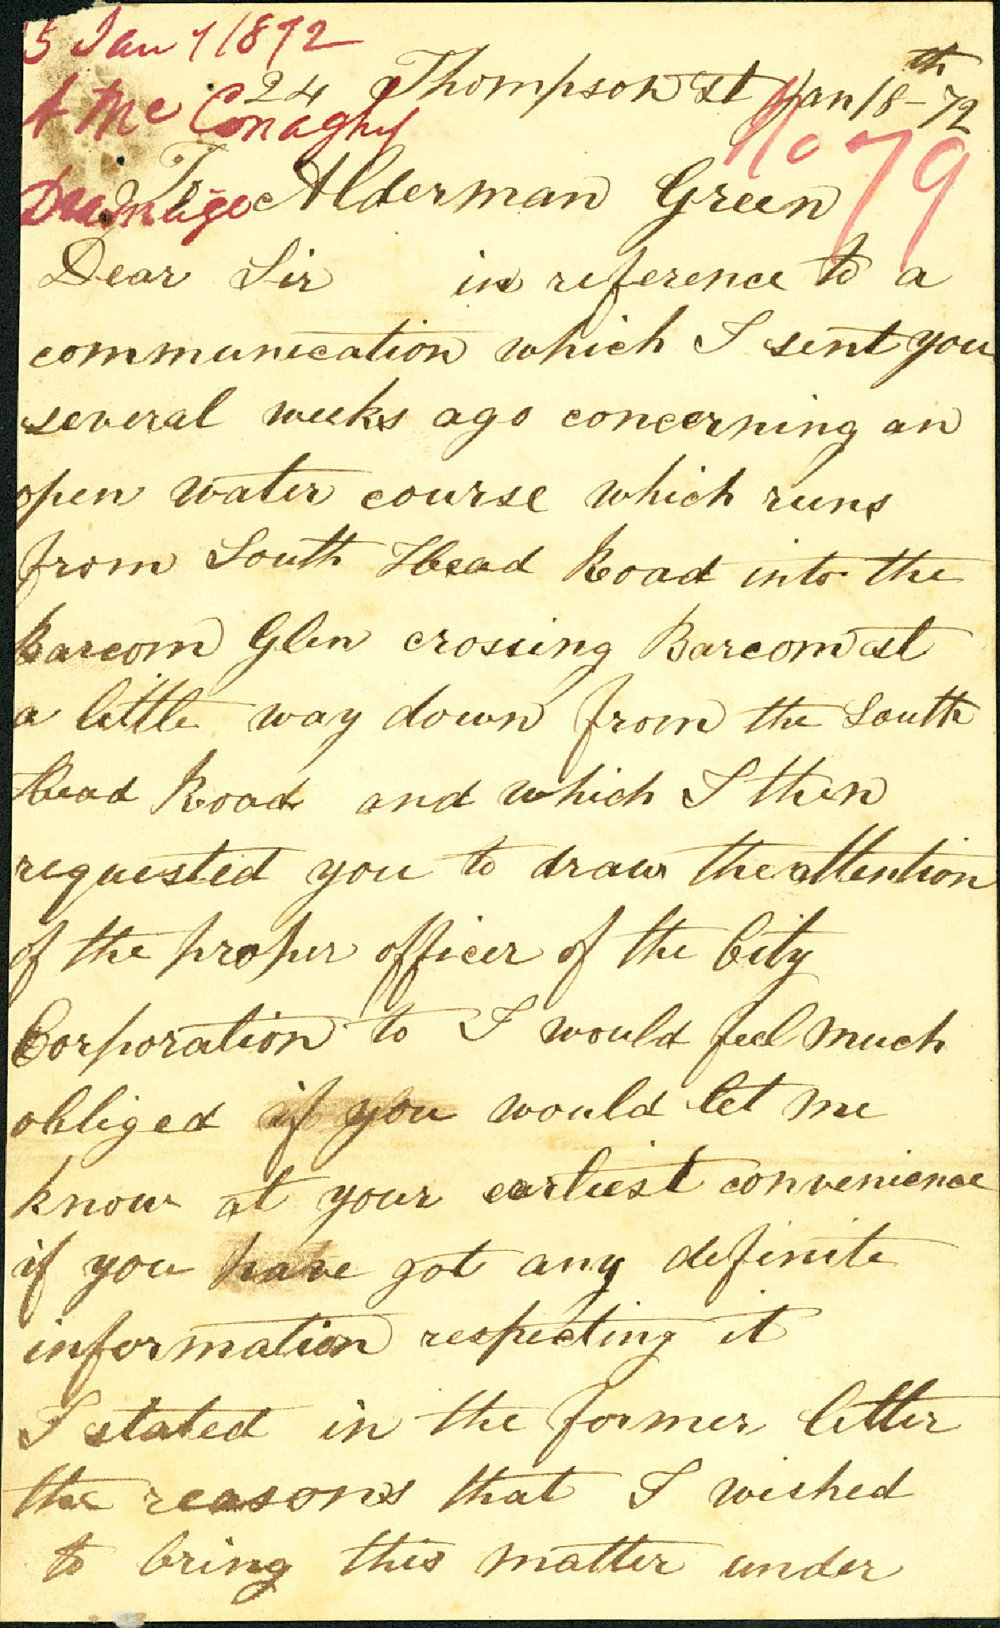 5 Jan 7 1872
A McConaghy
Drainage
No 79
24 Thompson St Jan 18th - 72
To Alderman Green
Dear Sir in reference to a
communication which I sent you
several weeks ago concerning an
open water course which runs
from South Head Road into the
Barcom Glen crossing Barcom st
a little way down from the South
Head Road and which I then
requested you to draw the attention
of the proper officer of the City
Corporation to I would feel much
obliged if you would let me
know at your earliest convenience
if you have got any definite
information respecting it
I stated in the former letter
the reasons that I wished
to bring this matter under